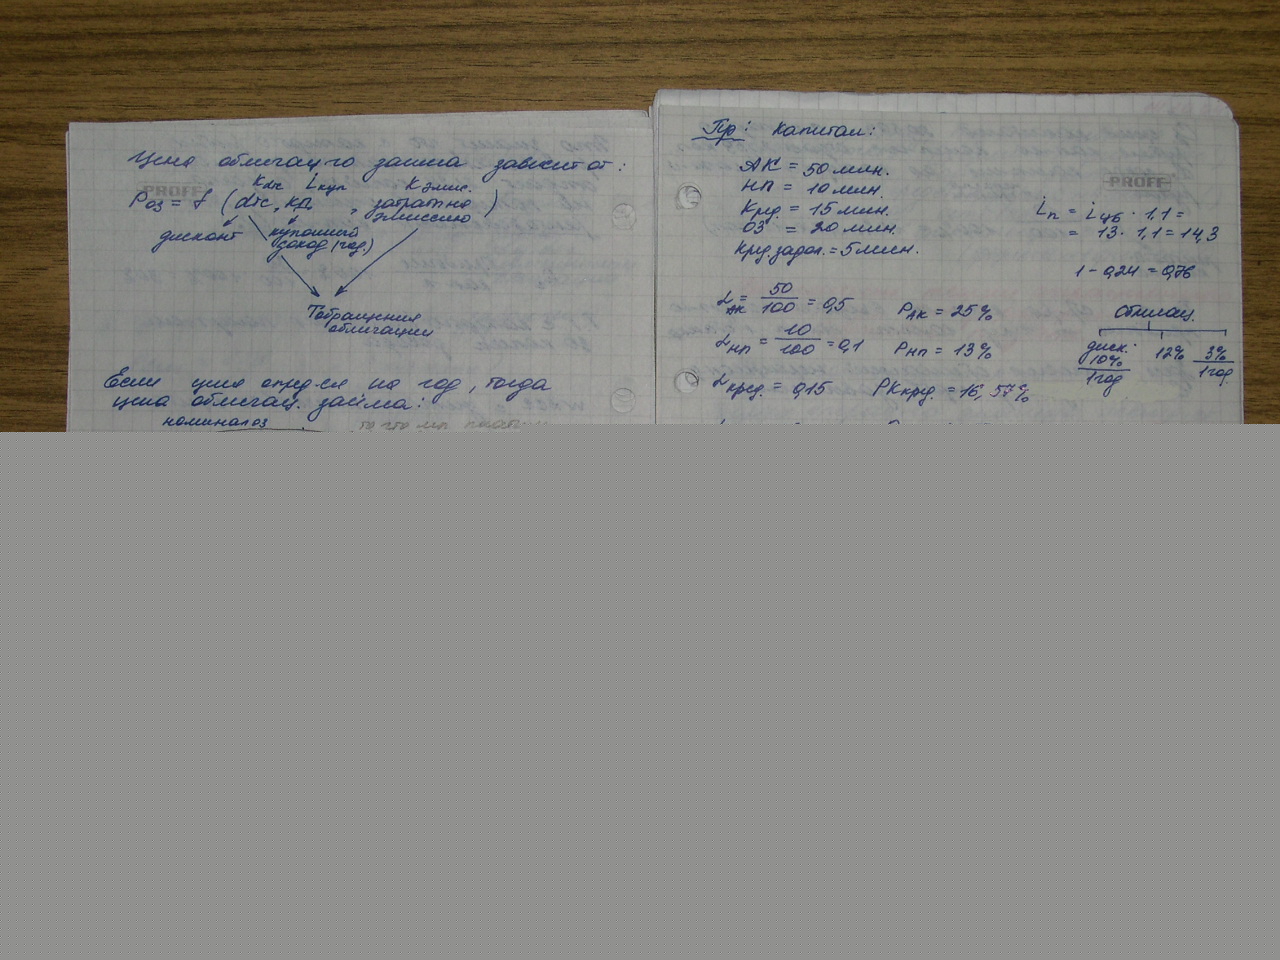 Цена облигац-го займа зависит от:
Kdis iкуп Kэмис.
Pоз = f (dis, КД, затраты на эмиссию)
дисконт купонный доход (год.)
T обращения облигации
Если цена опред-ся на год, тогда
цена облигац. займа:
номинал оз
PROFF
Пр: Капитал:
АК = 50 млн.
НП = 10 млн.
Кред = 15 млн.
ОЗ = 20 млн.
Кред. задол. = 5 млн.
iп = iцб · 1,1 =
= 13 · 1,1 = 14,3
1 - 0,24 = 0,76
αАК = 50/100 = 0,5 PАК = 25%
αНП = 10/100 = 0,1 PНП = 13%
αкред. = 0,15 PКкред. = 16,57%
Облигац.
диск. 10% 1 год 12% 3% 1 год
PROFF